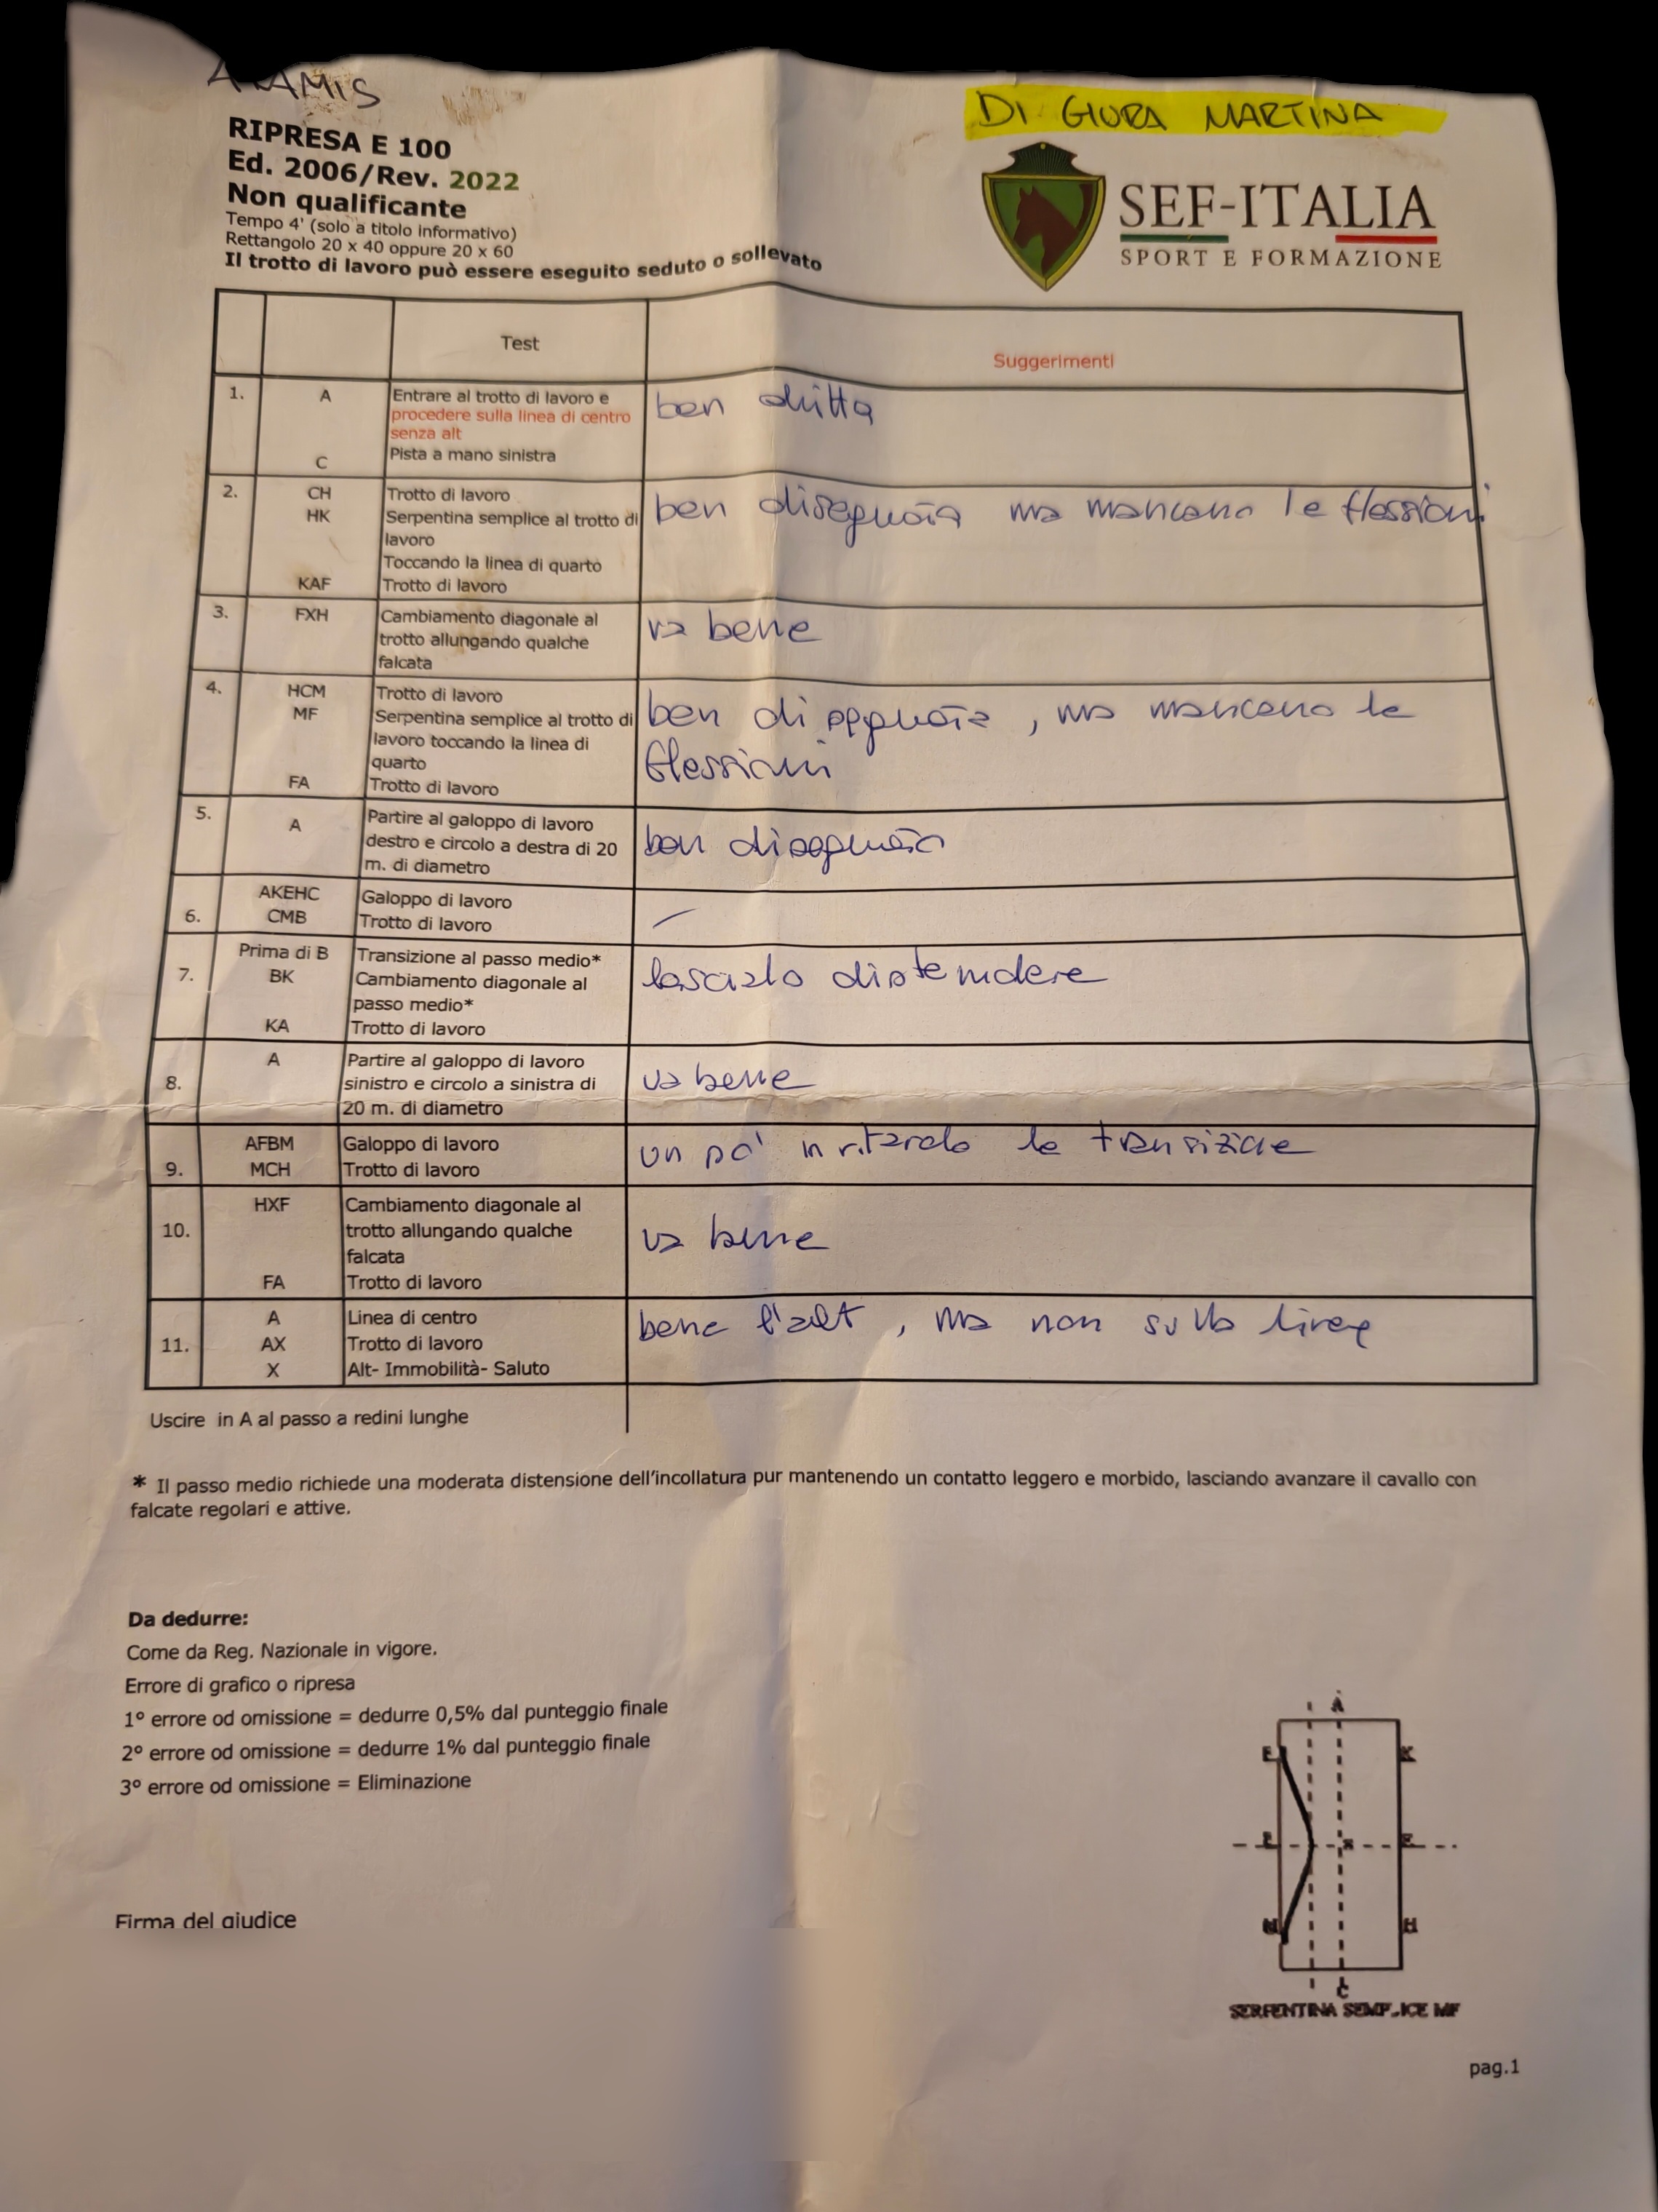 RIPRESA E 100
Ed. 2006/Rev. 2022
Non qualificante
Tempo 4' (solo a titolo informativo)
Rettangolo 20 x 40 oppure 20 x 60
Il trotto di lavoro può essere eseguito seduto o sollevato
DI GIURA MARTINA
SEF-ITALIA
SPORT E FORMAZIONE
Test
Suggerimenti
1.
A
Entrare al trotto di lavoro e
procedere sulla linea di centro
senza alt
C
Pista a mano sinistra
ben dritta
2.
CH
Trotto di lavoro
HK
Serpentina semplice al trotto di
lavoro
Toccando la linea di quarto
KAF
Trotto di lavoro
ben disegnata ma mancano le flessioni
3.
FXH
Cambiamento diagonale al
trotto allungando qualche
falcata
va bene
4.
HCM
Trotto di lavoro
MF
Serpentina semplice al trotto di
lavoro toccando la linea di
quarto
FA
Trotto di lavoro
ben disegnata, ma mancano le
flessioni
5.
A
Partire al galoppo di lavoro
destro e circolo a destra di 20
m. di diametro
ben disegnato
6.
AKEHC
Galoppo di lavoro
CMB
Trotto di lavoro
7.
Prima di B
Transizione al passo medio*
BK
Cambiamento diagonale al
passo medio*
KA
Trotto di lavoro
lascialo distendere
8.
A
Partire al galoppo di lavoro
sinistro e circolo a sinistra di
20 m. di diametro
va bene
9.
AFBM
Galoppo di lavoro
MCH
Trotto di lavoro
un po' in ritardo la transizione
10.
HXF
Cambiamento diagonale al
trotto allungando qualche
falcata
FA
Trotto di lavoro
va bene
11.
A
Linea di centro
AX
Trotto di lavoro
X
Alt- Immobilità- Saluto
bene l'alt, ma non sulla linea
Uscire in A al passo a redini lunghe
* Il passo medio richiede una moderata distensione dell'incollatura pur mantenendo un contatto leggero e morbido, lasciando avanzare il cavallo con
falcate regolari e attive.
Da dedurre:
Come da Reg. Nazionale in vigore.
Errore di grafico o ripresa
1° errore od omissione = dedurre 0,5% dal punteggio finale
2° errore od omissione = dedurre 1% dal punteggio finale
3° errore od omissione = Eliminazione
Firma del giudice
A
K
H
C
SERPENTINA SEMPLICE MF
pag.1